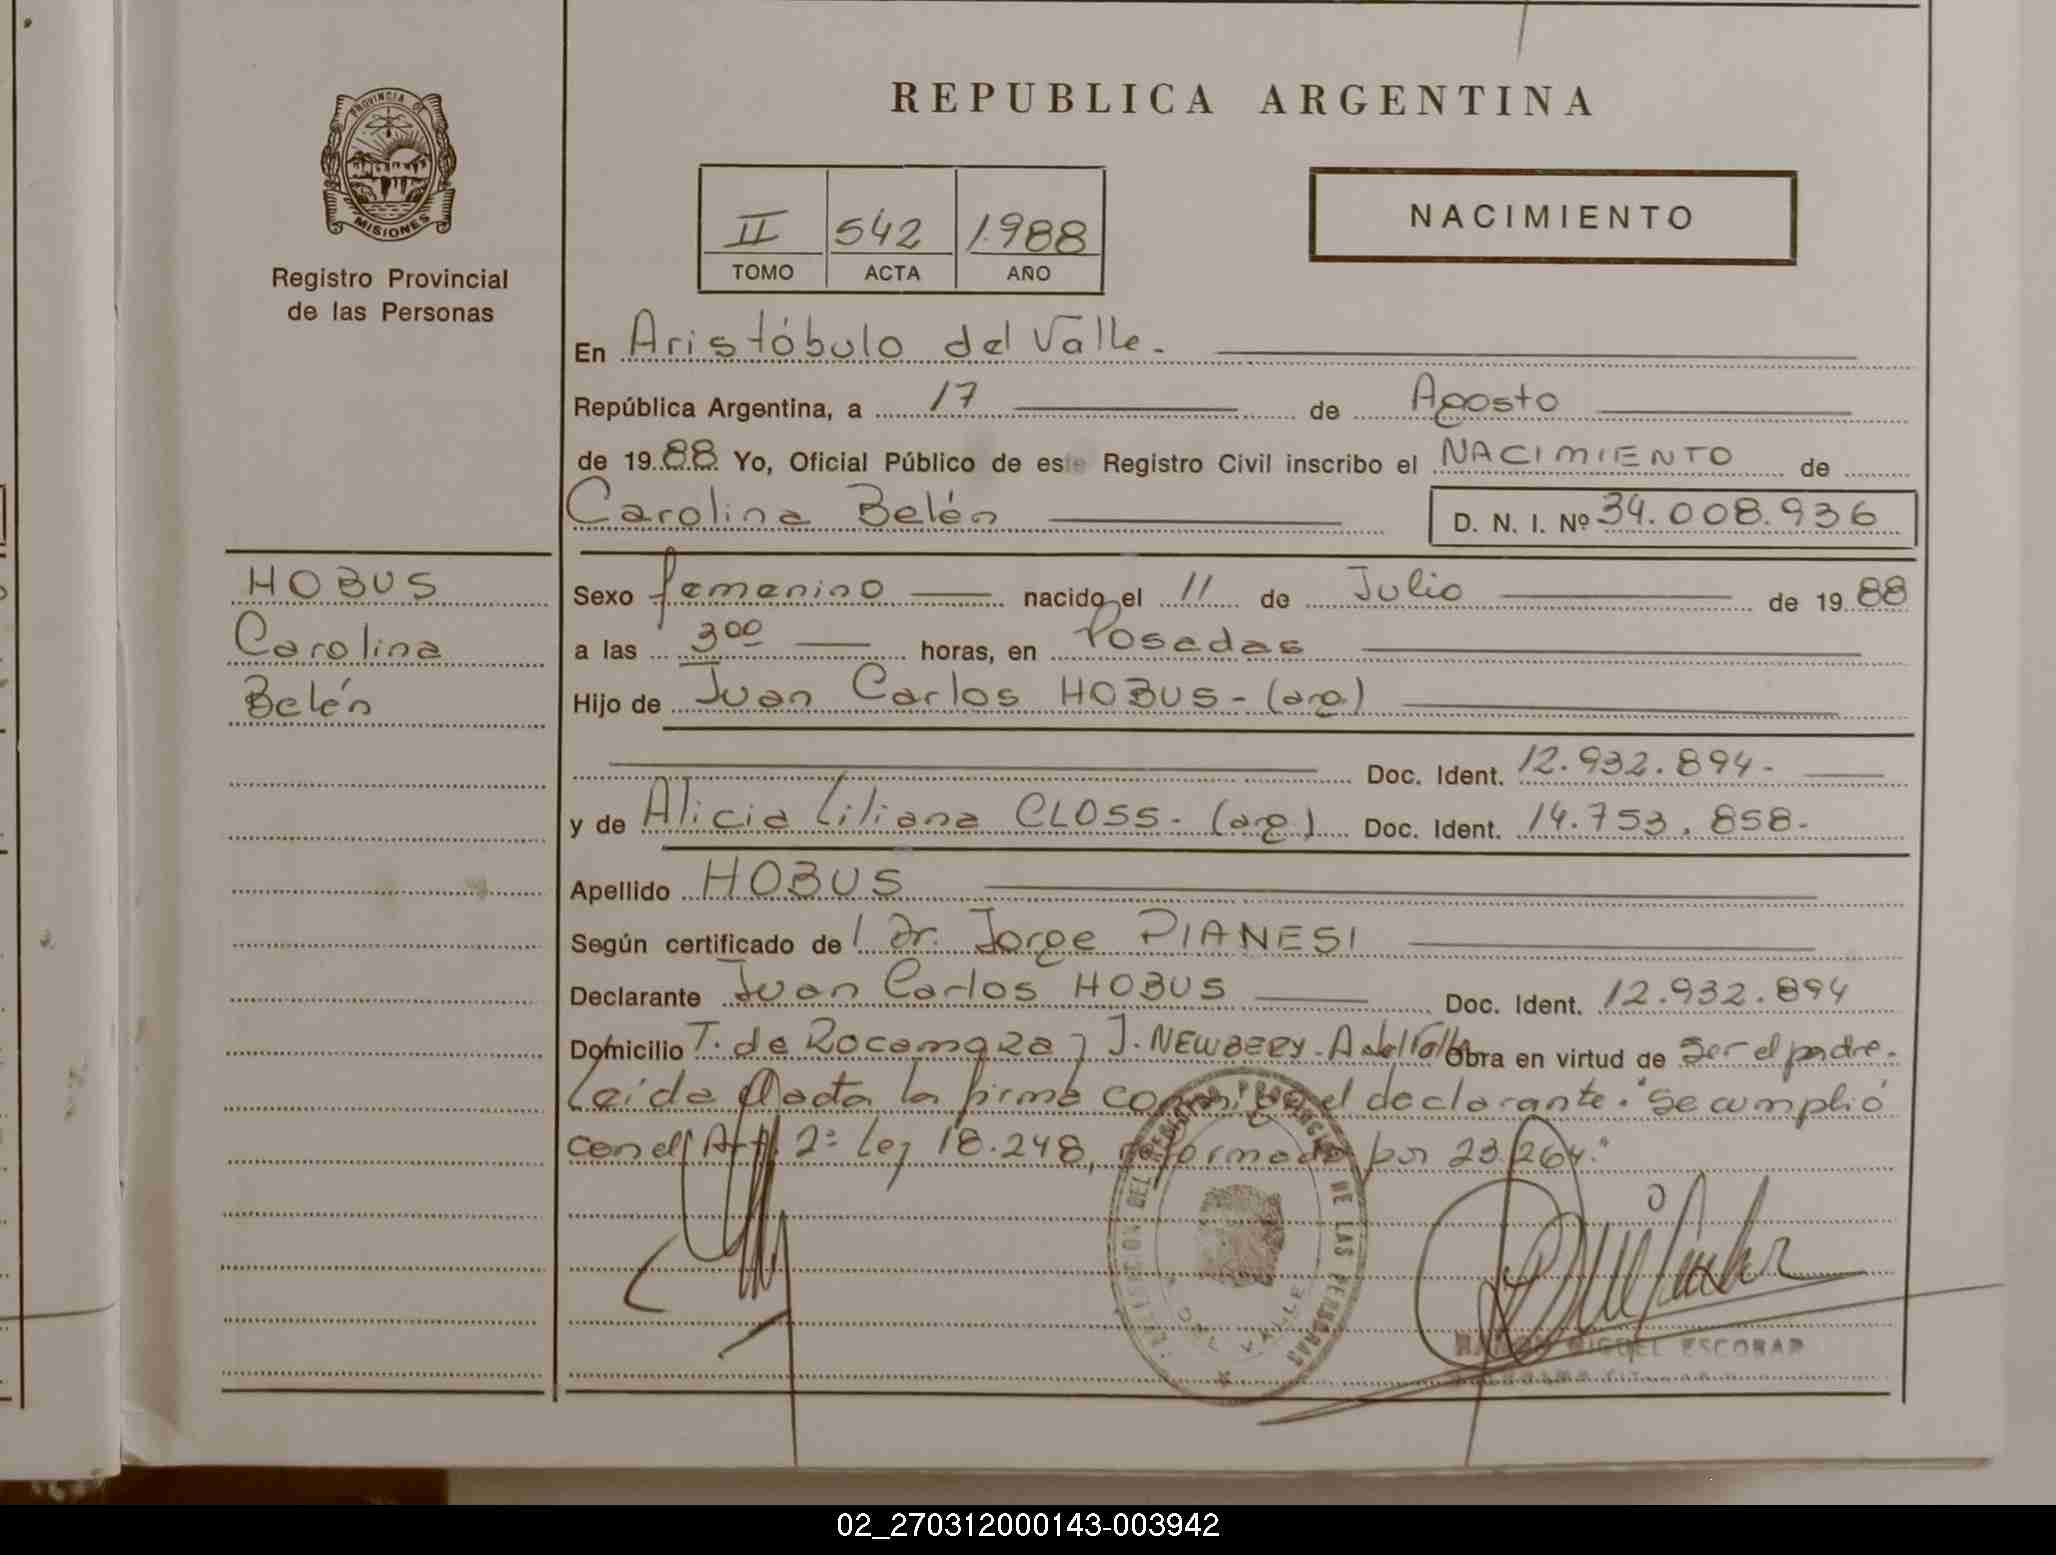 PROVINCIA DE
MISIONES
Registro Provincial
de las Personas
REPUBLICA ARGENTINA
II 542 1.988
TOMO ACTA AÑO
NACIMIENTO
En Aristóbulo del Valle.-
República Argentina, a 17 de Agosto
de 19 88. Yo, Oficial Público de este Registro Civil inscribo el NACIMIENTO de
Carolina Belén D. N. I. Nº 34.008.936
HOBUS
Carolina
Belén
Sexo femenino nacido el 11 de Julio de 19 88
a las 3 00 horas, en Posadas
Hijo de Juan Carlos HOBUS - (arg)
Doc. Ident. 12.932.894-
y de Alicia Liliana CLOSS - (arg) Doc. Ident. 14.753.858-
Apellido HOBUS
Según certificado de Dr. Jorge PIANESI
Declarante Juan Carlos HOBUS Doc. Ident. 12.932.894
Domicilio T. de Rocamora y J. NEWBERY - A del Valle Obra en virtud de Ser el padre.
Leída el acta la firma conmigo el declarante. "Se cumplió
con el Art. 2º Ley 18.248, reformado por 23.264."
PROVINCIAL DE LAS PERSONAS
DEL VALLE
RAMON MIGUEL ESCOBAR
02_270312000143-003942